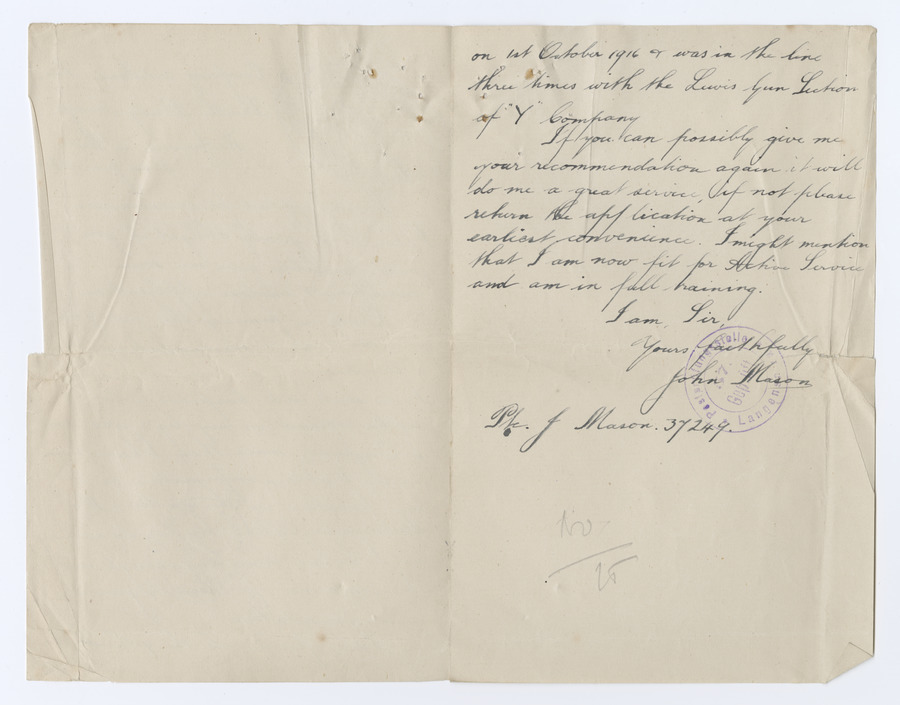 on 1st October 1916 & was in the line
three times with the Lewis Gun Section
of "Y" Company
If you can possibly give me
your recommendation again it will
do me a great service, if not please
return the application at your
earliest convenience. I might mention
that I am now fit for Active Service
and am in full training.
I am, Sir,
Yours faithfully
John Mason
Pte. J Mason. 37249.
Langen